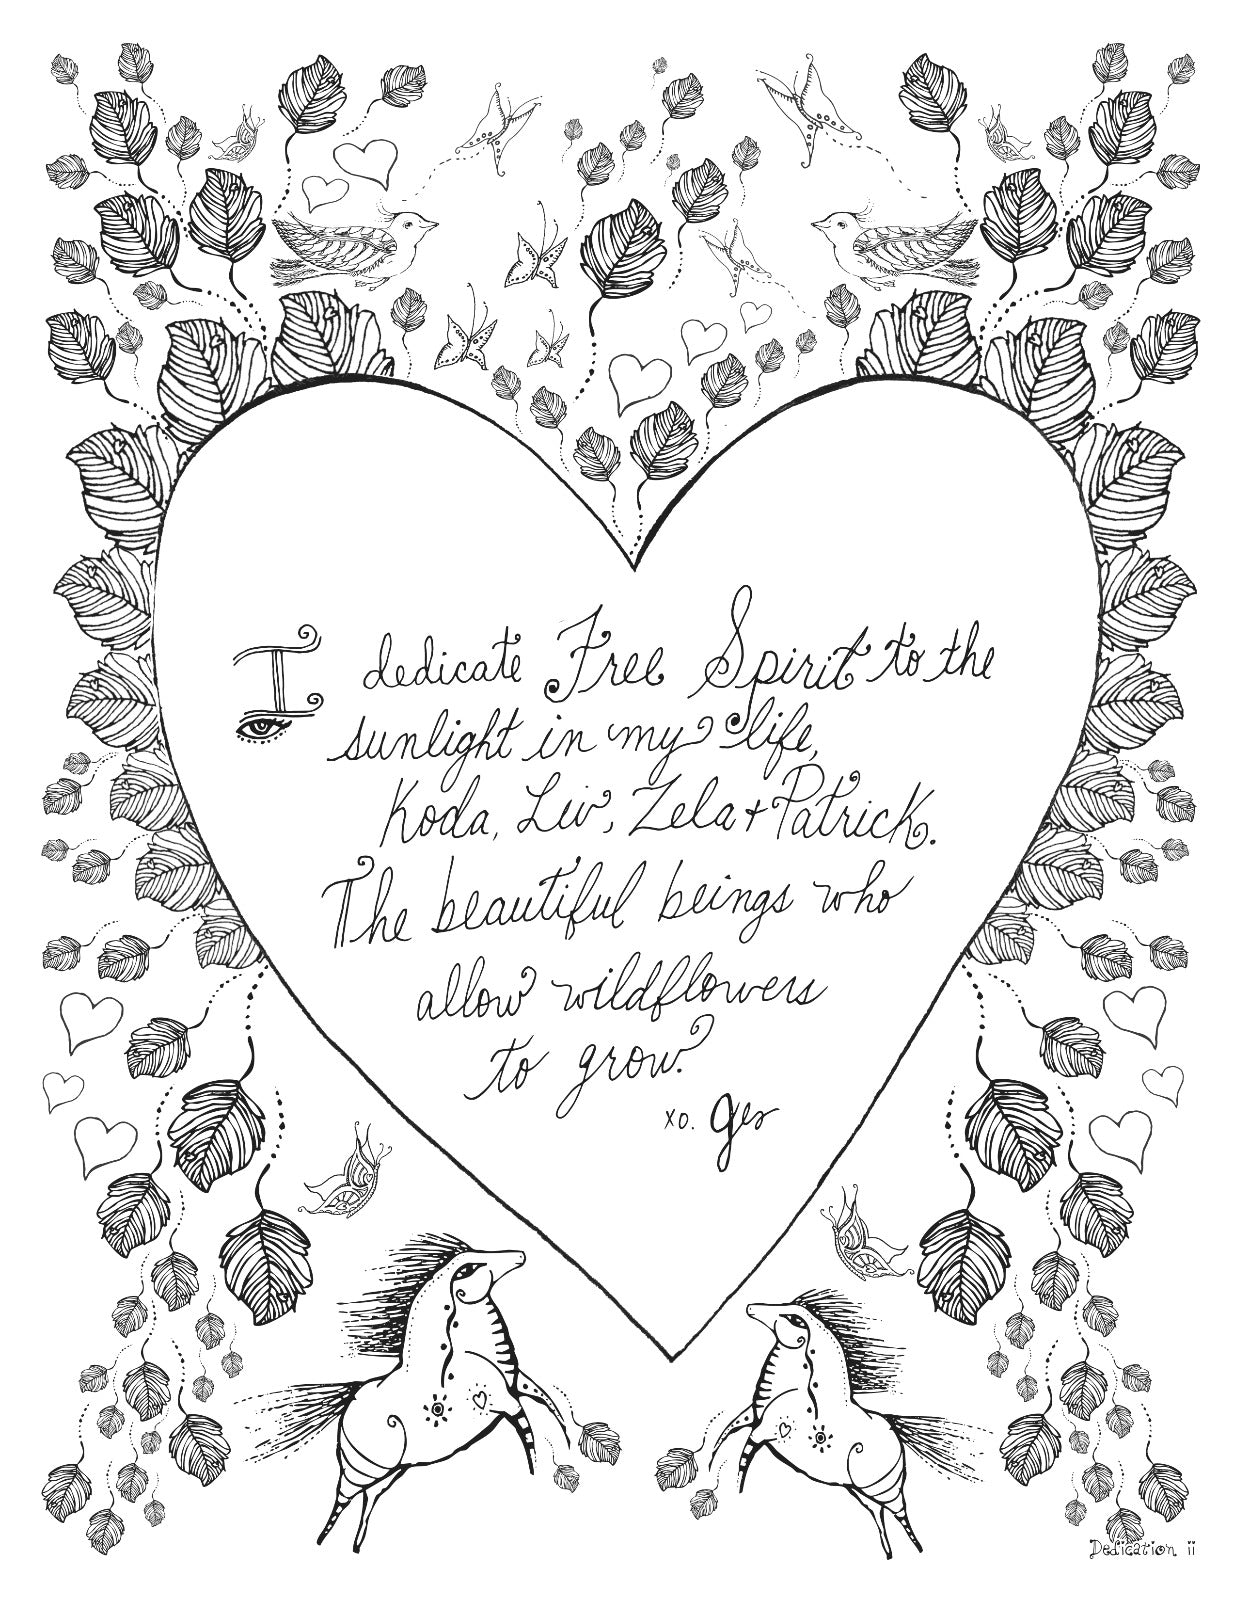 I dedicate Free Spirit to the
sunlight in my life,
Koda, Liv, Zela + Patrick.
The beautiful beings who
allow wildflowers
to grow.
xo. Ges
Dedication ii